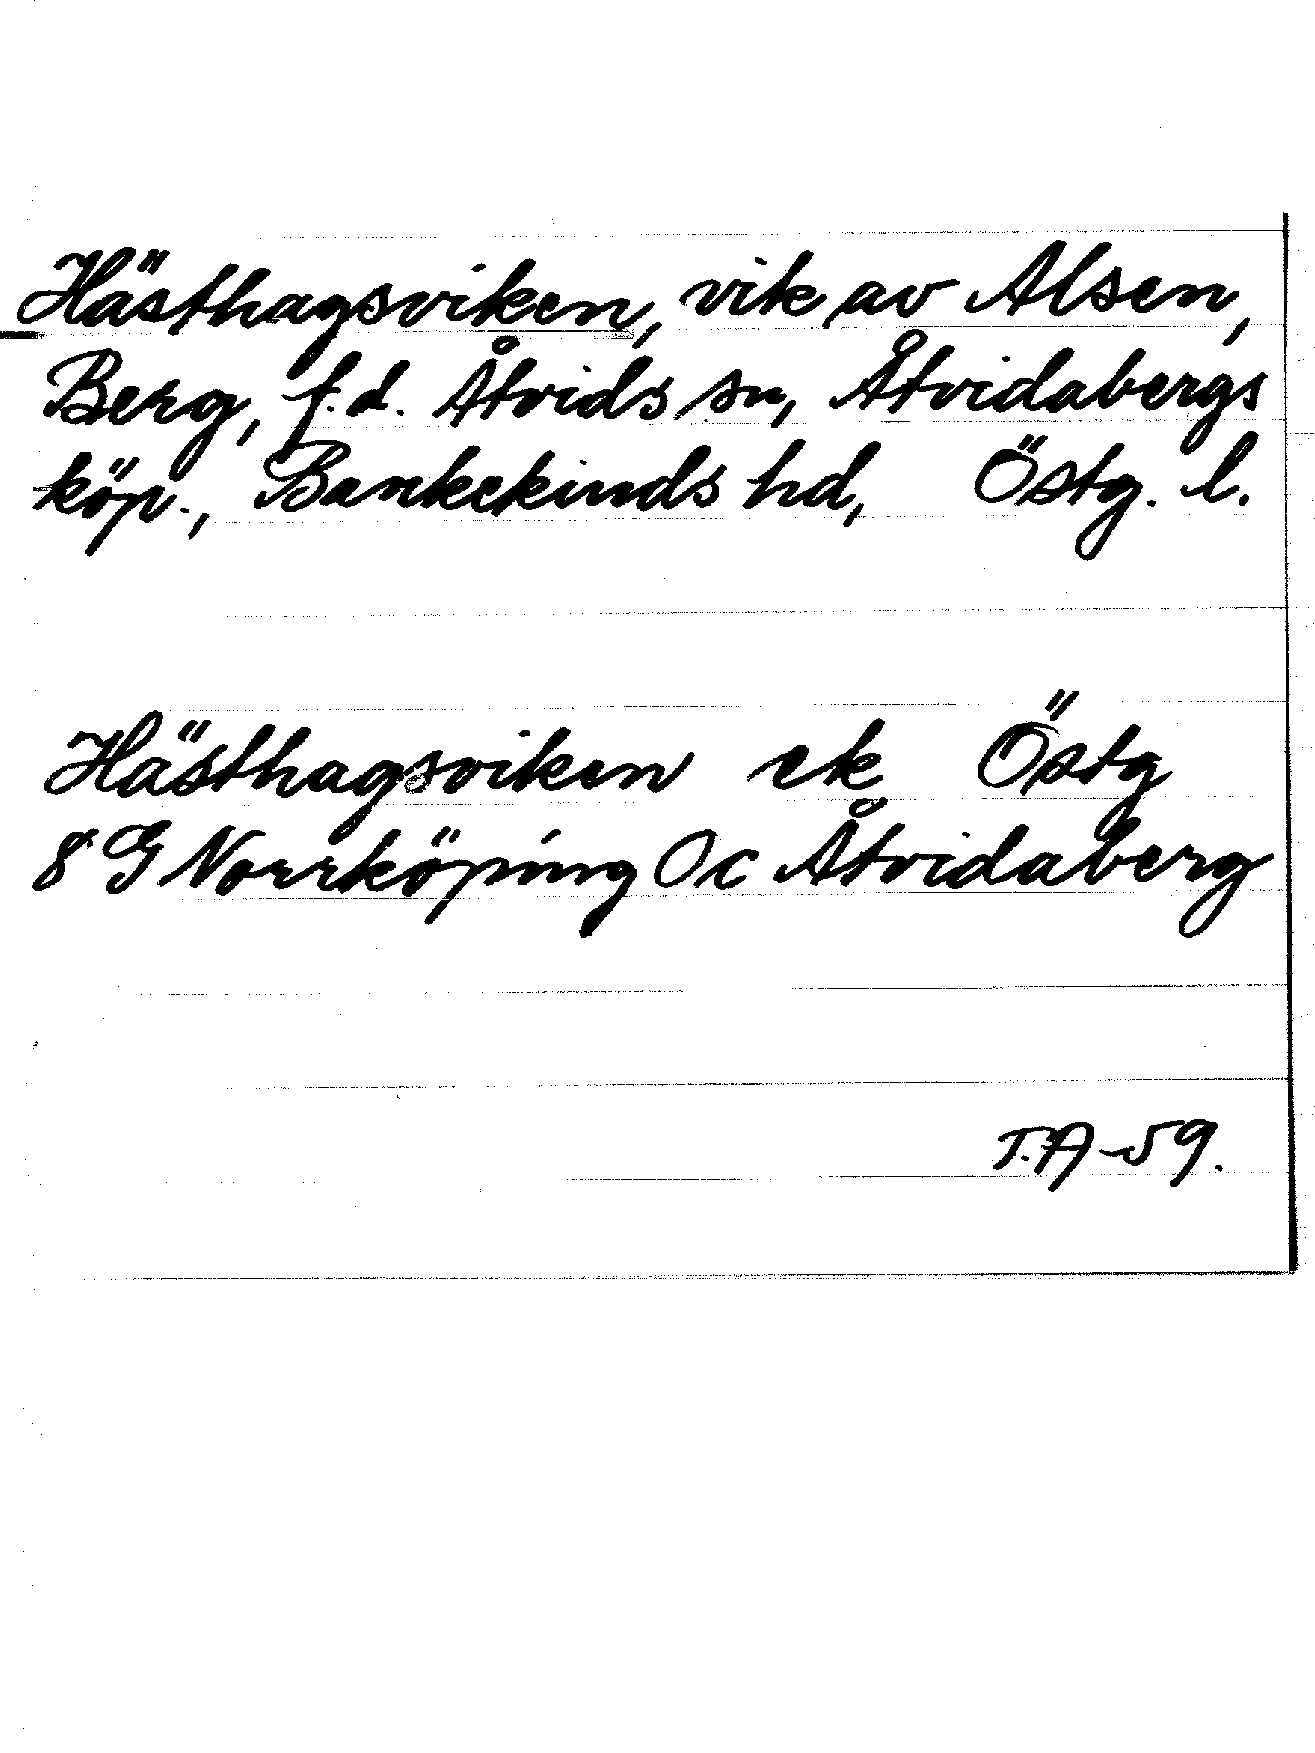 Hästhagsviken, vik av Alsen,
Berg, f.d. Åtvids sn, Åtvidabergs
köp., Bankekinds hd, Östg. l.
Hästhagsviken ek Östg
8 G Norrköping Oc Åtvidaberg
T.A-59.